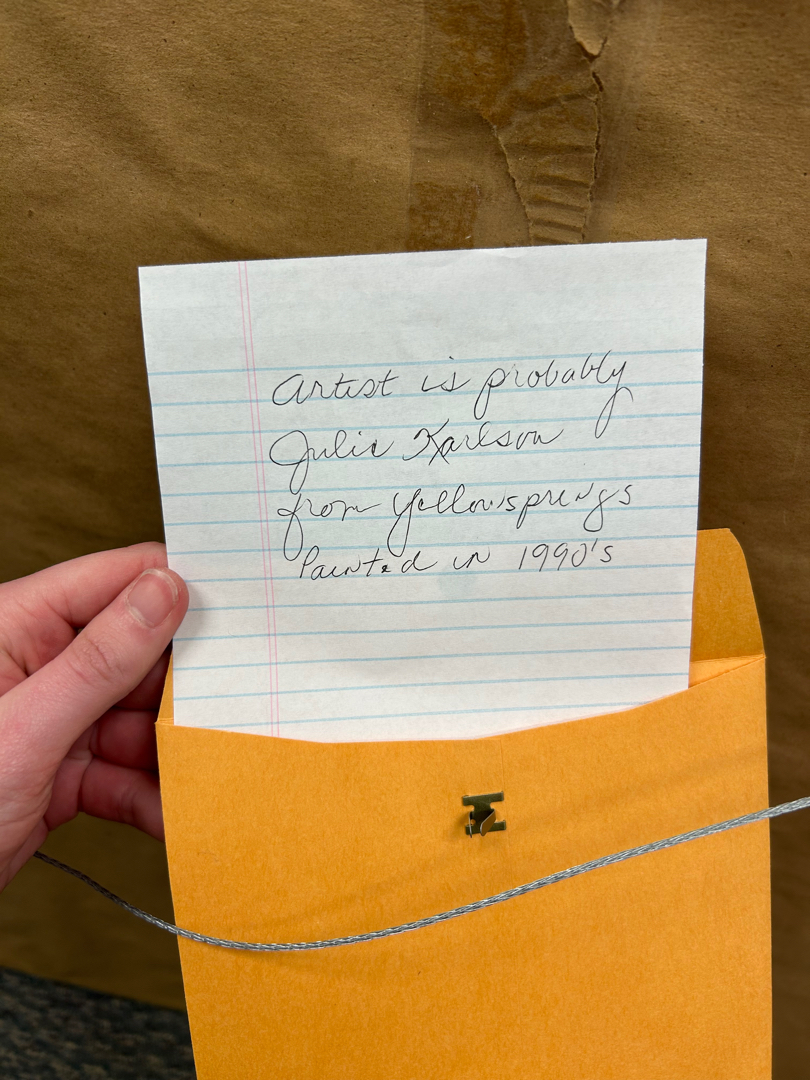 Artist is probably
Julie Karlson
from Yellowsprings
Painted in 1990's